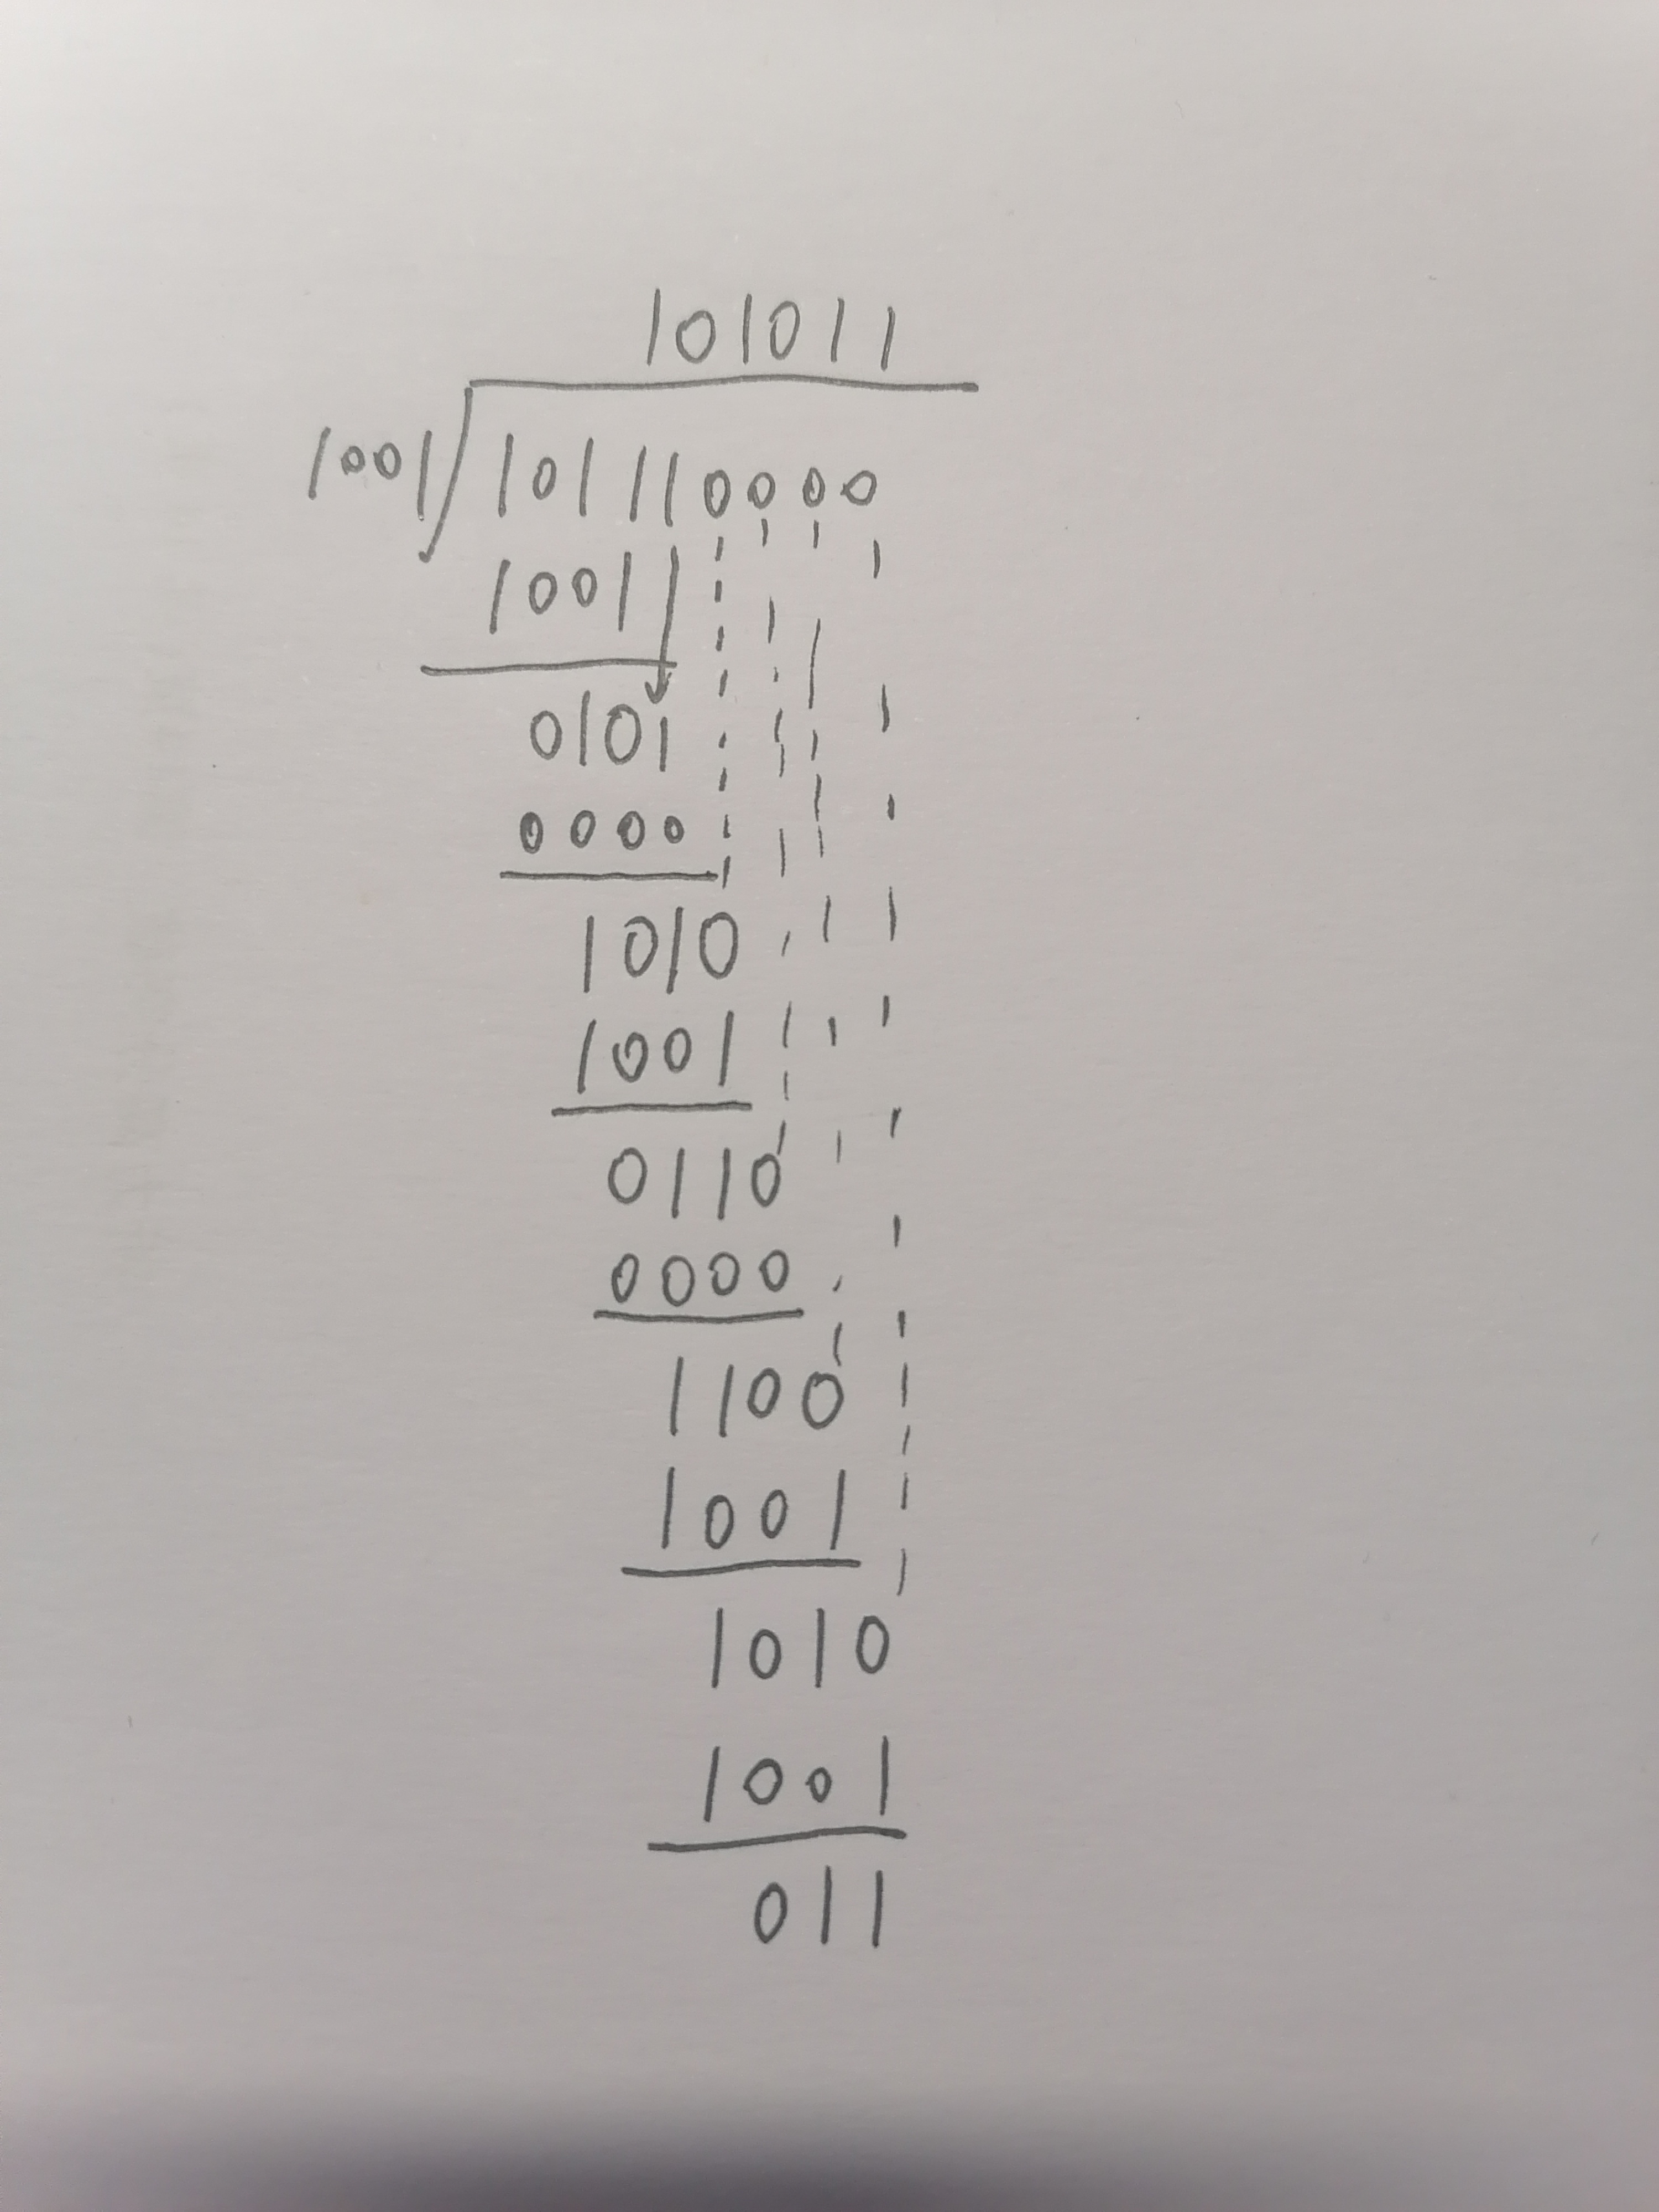 101011
1001 101110000
1001
0101
0000
1010
1001
0110
0000
1100
1001
1010
1001
011